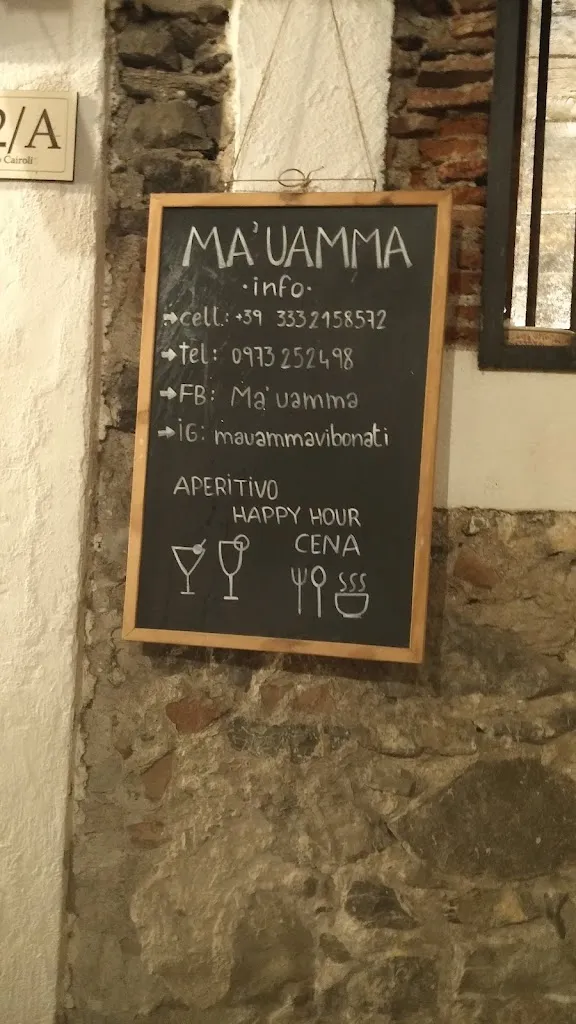 2/A
Cairoli
MA'UAMMA
·info·
→cell.: +39 3332158572
→tel: 0973 252498
→FB: Ma'uamma
→iG: mauammavibonati
APERITIVO
HAPPY HOUR
CENA